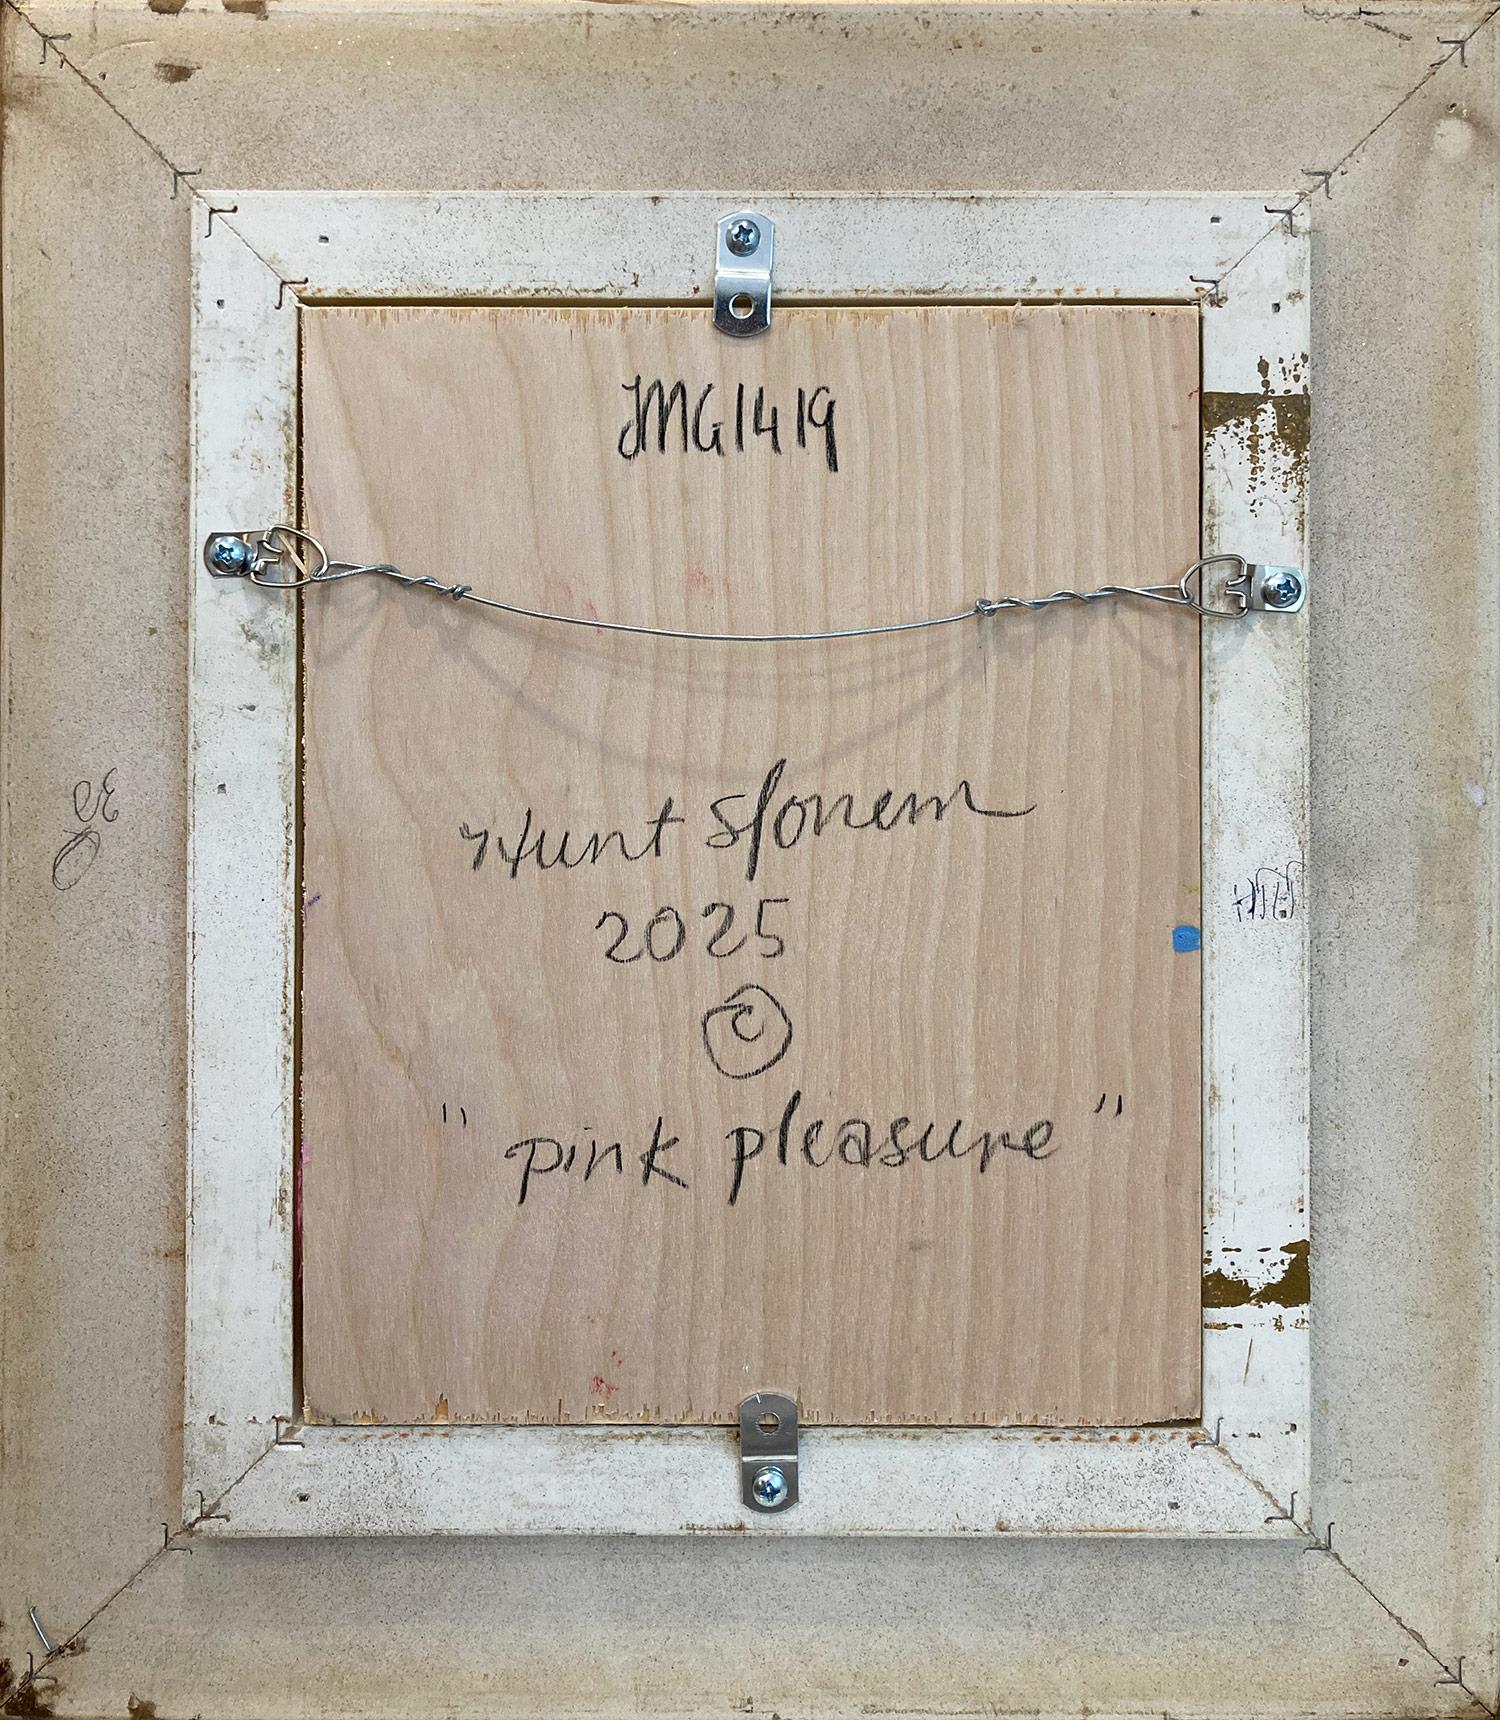 JMG1419
Hunt Slonem
2025
©
"pink pleasure"